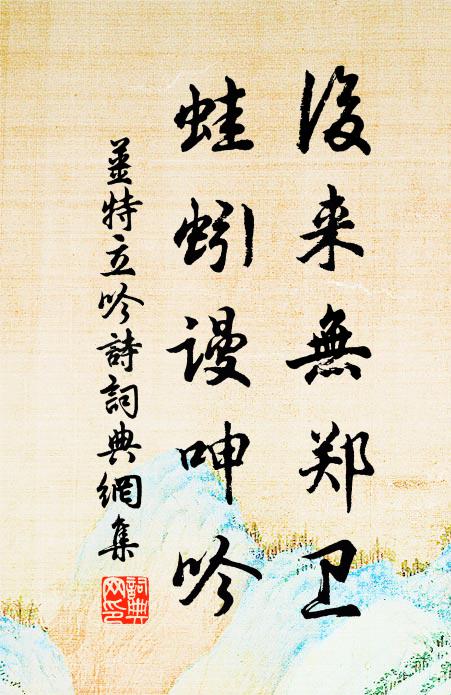 後来無郑卫
蛙蚓谩呻吟
姜特立吟詩詞典網集
詞典网印